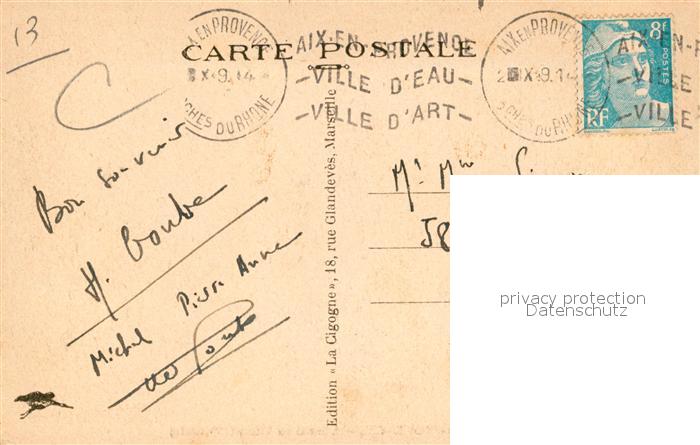 13
CARTE POSTALE
AIX EN PROVENCE
BCHES DU RHONE
AIX-EN-PROVENCE
-VILLE D'EAU-
-VILLE D'ART-
AIX EN PROVENCE
BCHES DU RHONE
AIX-EN-P
-VILLE
-VILLE
8F
POSTES
RF
Bon souvenir
H.
Michel Pierre Anne
Edition « La Cigogne », 18, rue Glandevès, Marseille
Mr Mme
58
privacy protection
Datenschutz